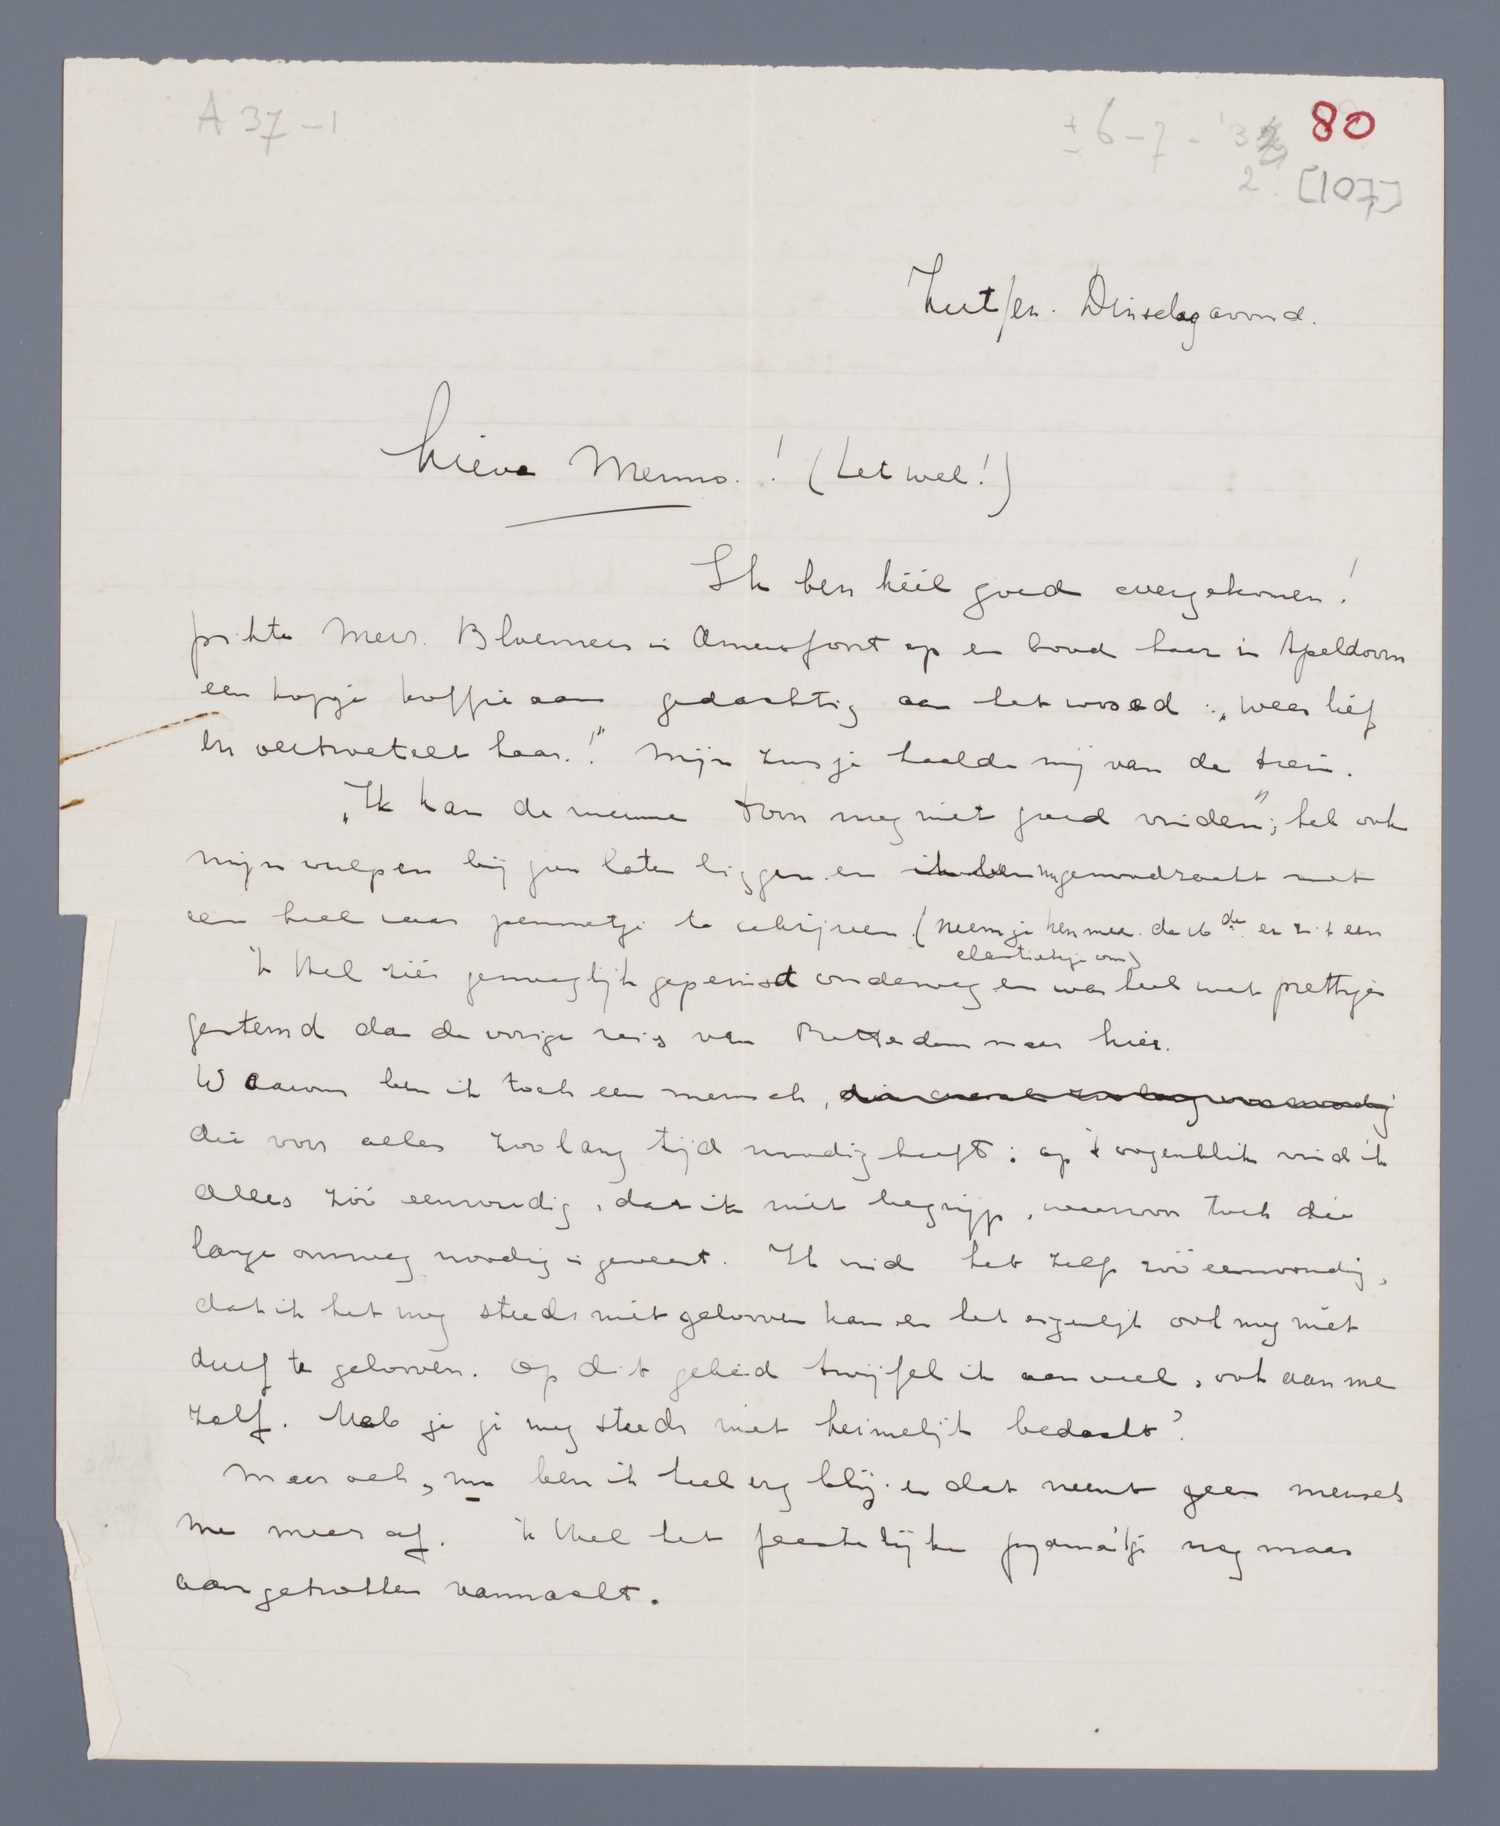 A 37-1
± 6-7-'3
2
80
[107]
Zutfen. Dinsdagavond.
Lieve Menno.! (Let wel!)
Ik ben héél goed overgekomen!
pikte Mevr. Bloemers in Amersfoort op en bood haar in Apeldoorn
een kopje koffie aan gedachtig aan het woord: „wees lief
en vertroetelt haar.!" Mijn zusje haalde mij van de trein.
„Ik kan de nieuwe toon nog niet goed vinden"; heb ook
mijn vulpen bij jou laten liggen en ik ben genoodzaakt met
een heel naar pennetje te schrijven (neem je hem mee de 16de er zit een
elastiekje om)
'k Heb zéér genoeglijk gepeinsd onderweg en was heel wat prettiger
gestemd dan de vorige reis van Rotterdam naar hier.
Waarom ben ik toch een mensch,
die voor alles zoo lang tijd noodig heeft; op 't oogenblik vind ik
alles zóó eenvoudig, dat ik niet begrijp, waarvoor toch die
lange omweg noodig is geweest. Ik vind het zelf zóó eenvoudig,
dat ik het nog steeds niet gelooven kan en het eigenlijk ook nog niet
durf te gelooven. Op dit gebied twijfel ik aan veel, ook aan me
zelf. Heb je je nog steeds niet heimelijk bedacht?
Maar ach, nu ben ik heel erg blij en dat neemt geen mensch
me meer af. 'k Heb het feestelijke pyamátje nog maar
aangetrokken vannacht.